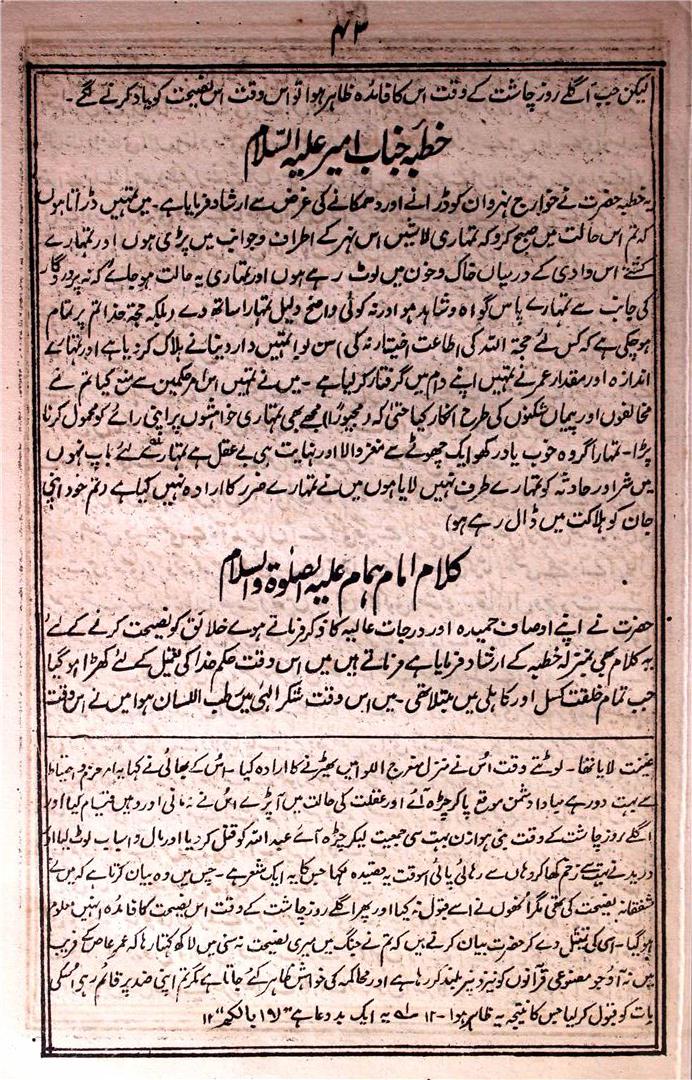 ۴۳
لیکن جب اگلے روز چاشت کے وقت اس کا فائدہ ظاہر ہوا تو اس وقت اس نصیحت کو یاد کرنے لگے۔
خطبۂ جناب امیر علیہ السّلام
یہ خطبہ حضرت نے خوارج نہروان کو ڈرانے اور دھمکانے کی غرض سے ارشاد فرمایا ہے۔ میں تمہیں ڈراتا ہوں
کہ تم اس حالت میں صبح کرو کہ تمہاری لاشیں اس نہر کے اطراف و جوانب میں پڑی ہوں اور تمہارے
کشتے اس وادی کے درمیان خاک و خون میں لوٹ رہے ہوں اور تمہاری یہ حالت ہو جائے کہ نہ پروردگار
کی جانب سے تمہارے پاس گواہ و شاہد ہو اور نہ کوئی واضح دلیل تمہارا ساتھ دے (بلکہ حجۃ خدا تم پر تمام
ہو چکی ہے کہ کس لئے حجۃ اللہ کی اطاعت اختیار نہ کی اس نو تمہیں دار دنیا نے ہلاک کر دیا ہے اور تمہارے
اندازہ اور مقدار عمر نے تمہیں اپنے دام میں گرفتار کر لیا ہے۔ میں نے تمہیں اس امر حکمین سے منع کیا تم نے
مخالفوں اور پیماں شکنوں کی طرح انکار کیا حتیٰ کہ (مجبوراً) مجھے بھی تمہاری خواہشوں پر اپنی رائے کو محمول کرنا
پڑا۔ تمہارا گروہ خوب یاد رکھو ایک چھوٹے سے مغز والا اور نہایت ہی بے عقل ہے تمہارے لئے باپ نہوں
میں شر اور حادثہ کو تمہارے طرف نہیں لایا ہوں میں نے تمہارے ضرر کا ارادہ نہیں کیا ہے (تم خود اپنی
جان کو ہلاکت میں ڈال رہے ہو)
کلام امام ہمام علیہ الصلوٰۃ والسلام
حضرت نے اپنے اوصاف حمیدہ اور درجات عالیہ کا ذکر فرماتے ہوئے خلائق کو نصیحت کرنے کے لئے
یہ کلام بھی بمنزلہ خطبہ کے ارشاد فرمایا ہے فرماتے ہیں میں اس وقت حکم خدا کی تعمیل کے لئے کھڑا ہو گیا
جب تمام خلقت کسل اور کاہلی میں مبتلا تھی۔ میں اس وقت شکر الٰہی میں رطب اللسان ہوا میں نے اس وقت
غنیمت لایا تھا۔ لوٹتے وقت اُس نے منزل منعرج اللوا میں ٹھیرنے کا ارادہ کیا۔ اس کے بھائی نے کہا یہ امر حزم و احتیاط
سے بہت دور ہے مبادا دشمن موقع پا کر چڑھ آئے اور غفلت کی حالت میں آ پڑے اس نے نہ مانی اور وہیں قیام کیا اور
اگلے روز چاشت کے وقت بنی ہوازن بہت سی جمعیت لیکر چڑھ آئے عبد اللہ کو قتل کر دیا اور مال و اسباب لوٹ لیا اور
درید نے بہت سے زخم کھا کر وہاں سے رہائی پائی اسوقت یہ قصیدہ کہا جس کا یہ ایک شعر ہے۔ جس میں وہ بیان کرتا ہے کہ میں نے
مشفقانہ نصیحت کی تھی مگر اُنھوں نے اسے قبول نہ کیا اور پھر اگلے روز چاشت کے وقت اس نصیحت کا فائدہ انہیں معلوم
ہو گیا۔ اسی کی تمثیل دے کر حضرت بیان کرتے ہیں کہ تم نے جنگ میں میری نصیحت نہ سنی میں لاکھ کہتا رہا کہ عمر عاص کے فریب
میں نہ آؤ جو مصنوعی قرآنوں کو نیزوں پر بلند کر رہا ہے اور محاکمہ کی خواہش ظاہر کئے جاتا ہے مگر تم اپنی ضد پر قائم رہی اُسکی
بات کو قبول کر لیا جس کا نتیجہ یہ ظاہر ہوا۔ ۱۲ یہ ایک بددعا ہے "لا ابا لکم" ۱۲